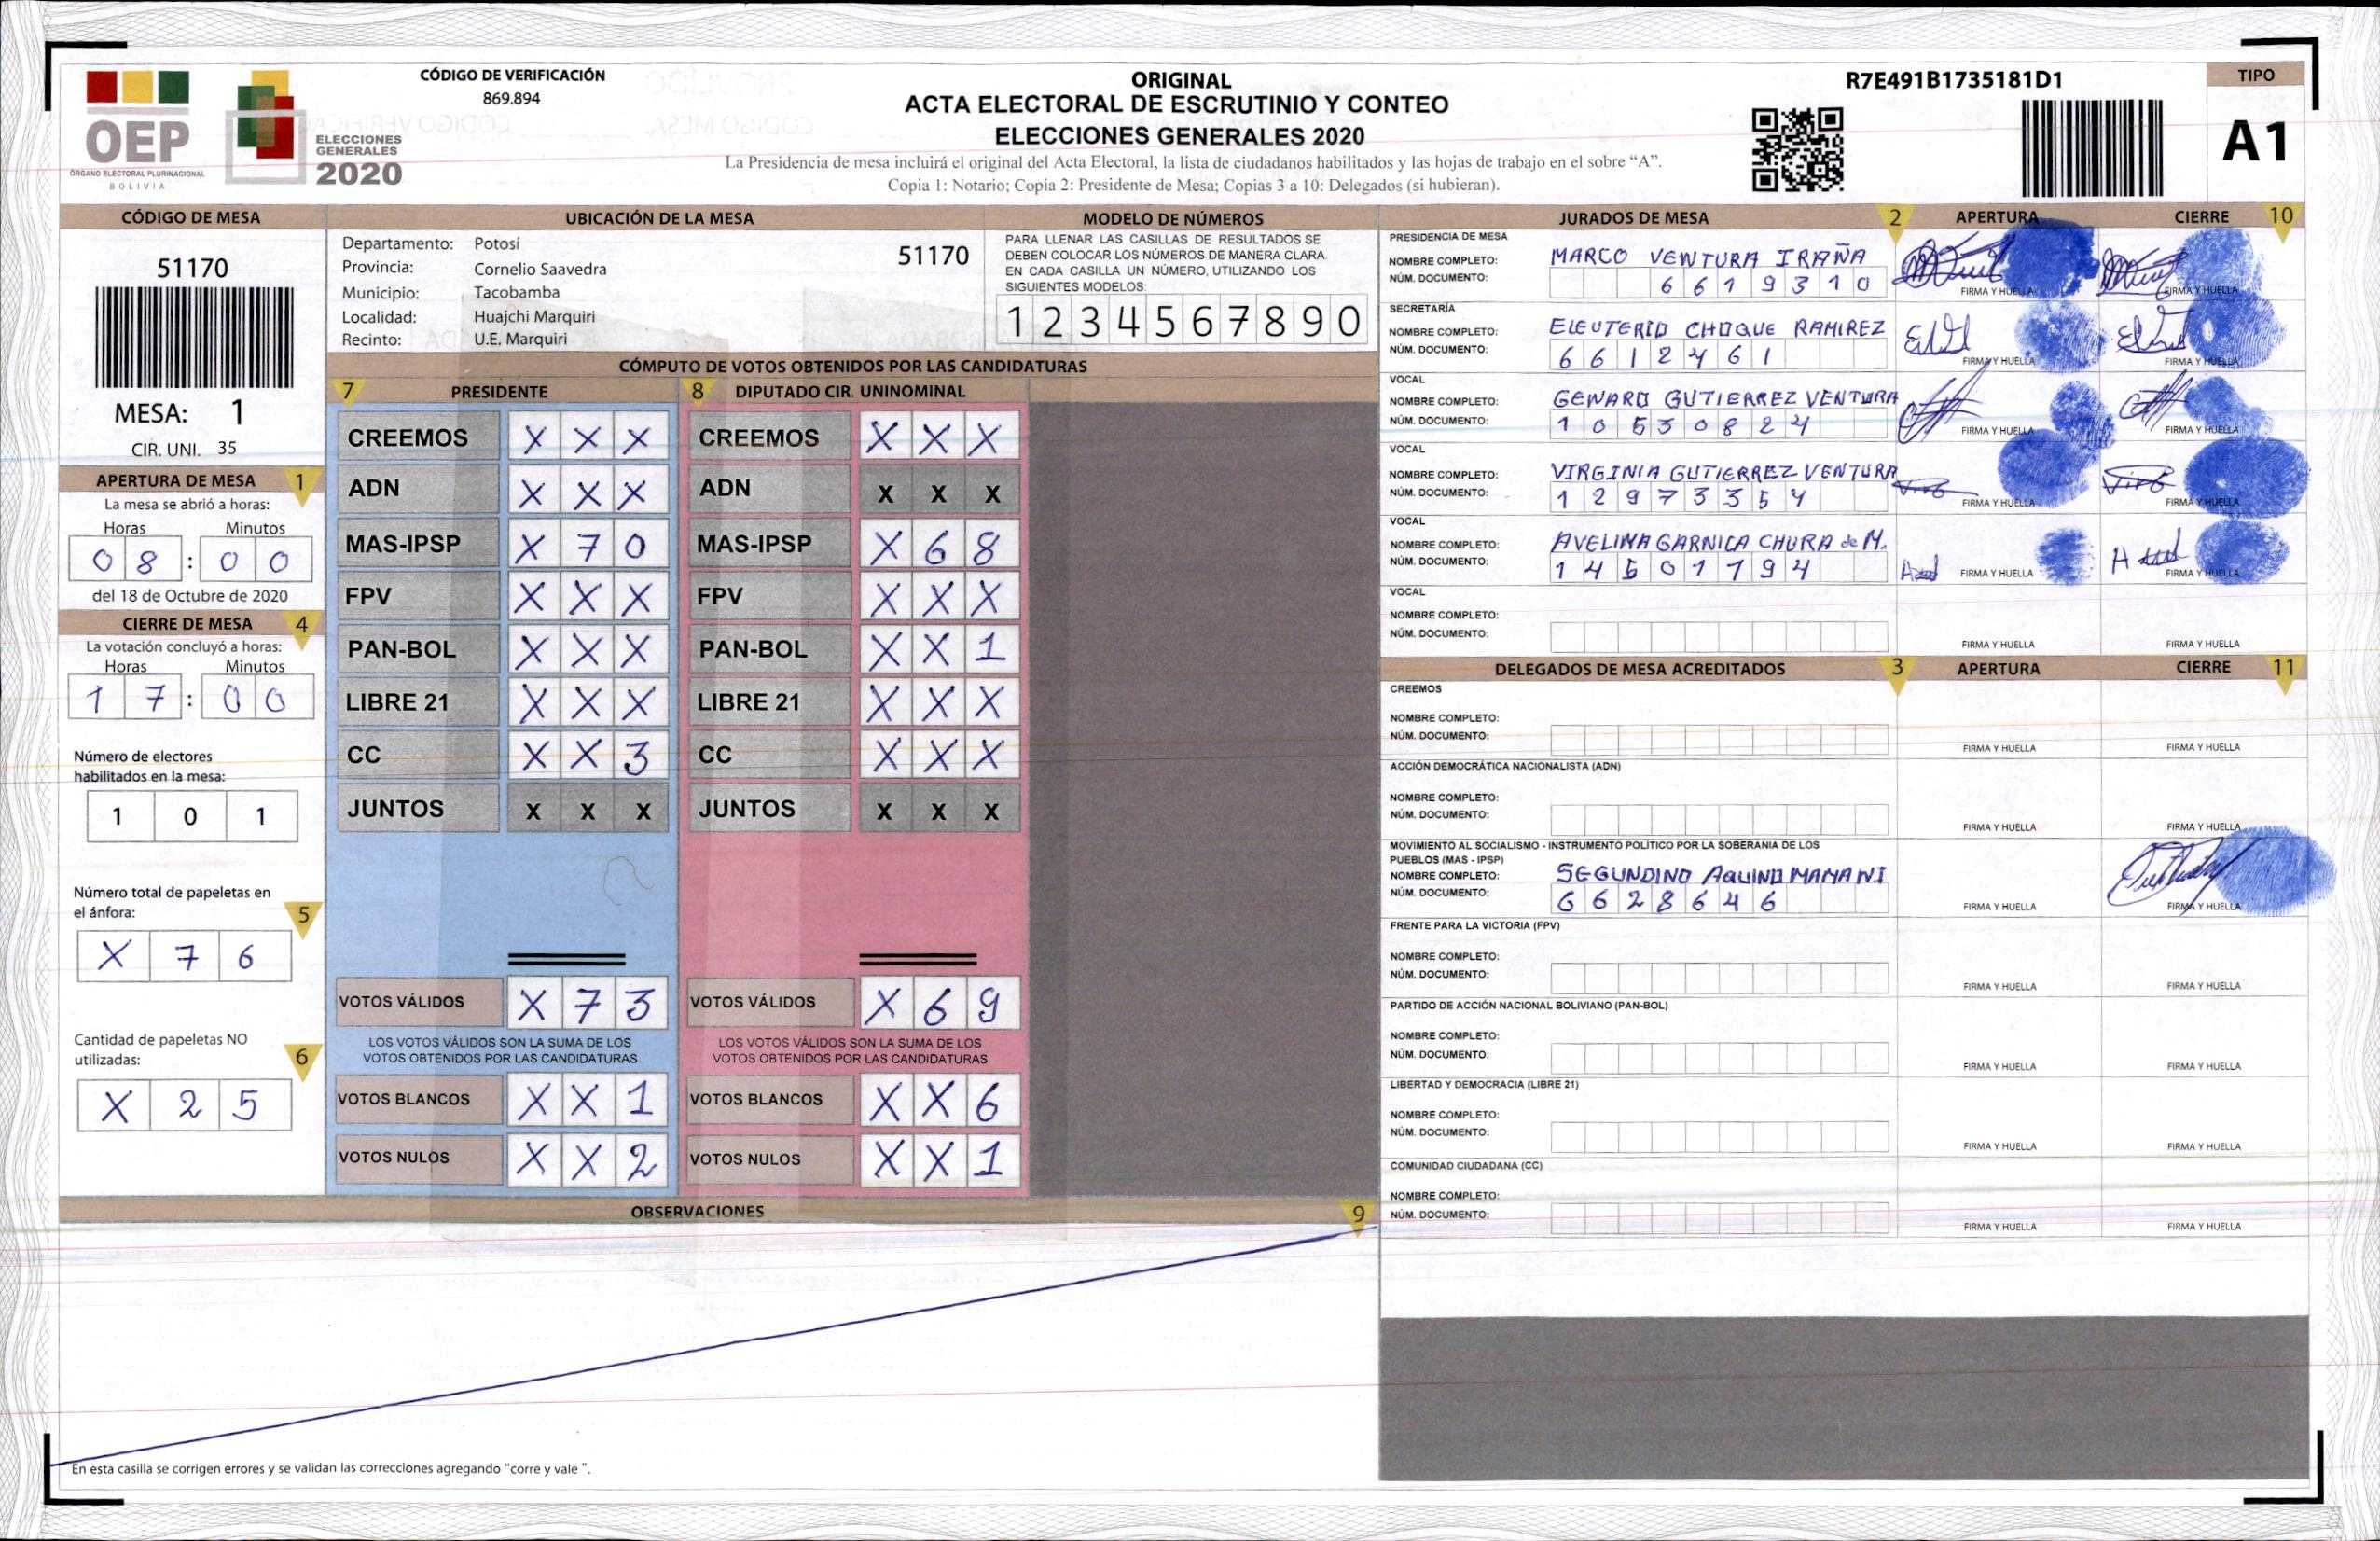 OEP
ÓRGANO ELECTORAL PLURINACIONAL
BOLIVIA
ELECCIONES
GENERALES
2020
CÓDIGO DE VERIFICACIÓN
869.894
ORIGINAL
ACTA ELECTORAL DE ESCRUTINIO Y CONTEO
ELECCIONES GENERALES 2020
La Presidencia de mesa incluirá el original del Acta Electoral, la lista de ciudadanos habilitados y las hojas de trabajo en el sobre “A”.
Copia 1: Notario; Copia 2: Presidente de Mesa; Copias 3 a 10: Delegados (si hubieran).
R7E491B1735181D1
TIPO
A1
CÓDIGO DE MESA
51170
MESA: 1
CIR. UNI. 35
APERTURA DE MESA 1
La mesa se abrió a horas:
Horas Minutos
0 8 : 0 0
del 18 de Octubre de 2020
CIERRE DE MESA 4
La votación concluyó a horas:
Horas Minutos
1 7 : 0 0
Número de electores
habilitados en la mesa:
1 0 1
Número total de papeletas en
el ánfora: 5
X 7 6
Cantidad de papeletas NO
utilizadas: 6
X 2 5
UBICACIÓN DE LA MESA
Departamento: Potosí 51170
Provincia: Cornelio Saavedra
Municipio: Tacobamba
Localidad: Huajchi Marquiri
Recinto: U.E. Marquiri
MODELO DE NÚMEROS
PARA LLENAR LAS CASILLAS DE RESULTADOS SE
DEBEN COLOCAR LOS NÚMEROS DE MANERA CLARA.
EN CADA CASILLA UN NÚMERO, UTILIZANDO LOS
SIGUIENTES MODELOS:
1 2 3 4 5 6 7 8 9 0
CÓMPUTO DE VOTOS OBTENIDOS POR LAS CANDIDATURAS
7 PRESIDENTE 8 DIPUTADO CIR. UNINOMINAL
CREEMOS X X X CREEMOS X X X
ADN X X X ADN X X X
MAS-IPSP X 7 0 MAS-IPSP X 6 8
FPV X X X FPV X X X
PAN-BOL X X X PAN-BOL X X 1
LIBRE 21 X X X LIBRE 21 X X X
CC X X 3 CC X X X
JUNTOS X X X JUNTOS X X X
VOTOS VÁLIDOS X 7 3 VOTOS VÁLIDOS X 6 9
LOS VOTOS VÁLIDOS SON LA SUMA DE LOS LOS VOTOS VÁLIDOS SON LA SUMA DE LOS
VOTOS OBTENIDOS POR LAS CANDIDATURAS VOTOS OBTENIDOS POR LAS CANDIDATURAS
VOTOS BLANCOS X X 1 VOTOS BLANCOS X X 6
VOTOS NULOS X X 2 VOTOS NULOS X X 1
OBSERVACIONES 9
En esta casilla se corrigen errores y se validan las correcciones agregando “corre y vale ”.
JURADOS DE MESA 2 APERTURA CIERRE 10
PRESIDENCIA DE MESA
NOMBRE COMPLETO: MARCO VENTURA IRAÑA
NÚM. DOCUMENTO: 6 6 1 9 3 1 0
FIRMA Y HUELLA FIRMA Y HUELLA
SECRETARÍA
NOMBRE COMPLETO: ELEUTERIO CHOQUE RAMIREZ
NÚM. DOCUMENTO: 6 6 1 2 4 6 1
FIRMA Y HUELLA FIRMA Y HUELLA
VOCAL
NOMBRE COMPLETO: GENARO GUTIERREZ VENTURA
NÚM. DOCUMENTO: 1 0 5 3 0 8 2 4
FIRMA Y HUELLA FIRMA Y HUELLA
VOCAL
NOMBRE COMPLETO: VIRGINIA GUTIERREZ VENTURA
NÚM. DOCUMENTO: 1 2 9 7 3 3 5 4
FIRMA Y HUELLA FIRMA Y HUELLA
VOCAL
NOMBRE COMPLETO: AVELINA GARNICA CHURA de M.
NÚM. DOCUMENTO: 1 4 5 0 1 7 9 4
FIRMA Y HUELLA FIRMA Y HUELLA
VOCAL
NOMBRE COMPLETO:
NÚM. DOCUMENTO:
FIRMA Y HUELLA FIRMA Y HUELLA
DELEGADOS DE MESA ACREDITADOS 3 APERTURA CIERRE 11
CREEMOS
NOMBRE COMPLETO:
NÚM. DOCUMENTO:
FIRMA Y HUELLA FIRMA Y HUELLA
ACCIÓN DEMOCRÁTICA NACIONALISTA (ADN)
NOMBRE COMPLETO:
NÚM. DOCUMENTO:
FIRMA Y HUELLA FIRMA Y HUELLA
MOVIMIENTO AL SOCIALISMO - INSTRUMENTO POLÍTICO POR LA SOBERANIA DE LOS
PUEBLOS (MAS - IPSP)
NOMBRE COMPLETO: SEGUNDINO AQUINO MAMANI
NÚM. DOCUMENTO: 6 6 2 8 6 4 6
FIRMA Y HUELLA FIRMA Y HUELLA
FRENTE PARA LA VICTORIA (FPV)
NOMBRE COMPLETO:
NÚM. DOCUMENTO:
FIRMA Y HUELLA FIRMA Y HUELLA
PARTIDO DE ACCIÓN NACIONAL BOLIVIANO (PAN-BOL)
NOMBRE COMPLETO:
NÚM. DOCUMENTO:
FIRMA Y HUELLA FIRMA Y HUELLA
LIBERTAD Y DEMOCRACIA (LIBRE 21)
NOMBRE COMPLETO:
NÚM. DOCUMENTO:
FIRMA Y HUELLA FIRMA Y HUELLA
COMUNIDAD CIUDADANA (CC)
NOMBRE COMPLETO:
NÚM. DOCUMENTO:
FIRMA Y HUELLA FIRMA Y HUELLA